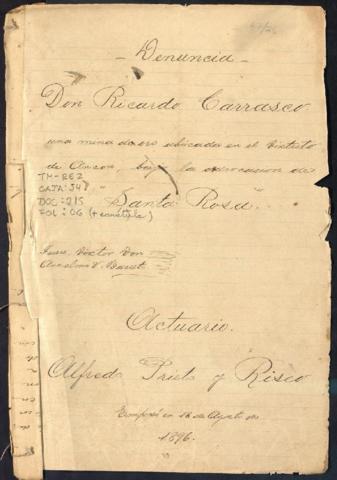 Denuncia
Don Ricardo Carrasco
una mina de oro ubicada en el
de Ancon, bajo la advocacion de
TM-RE2
CAJA:
DOC: 215
FOL: 06 (+ carátula)
"Santa Rosa"
Juez Doctor Don
Anselmo V. Barret
Actuario.
Alfredo Prieto y Risco
Empezó en de Agosto de
1896.